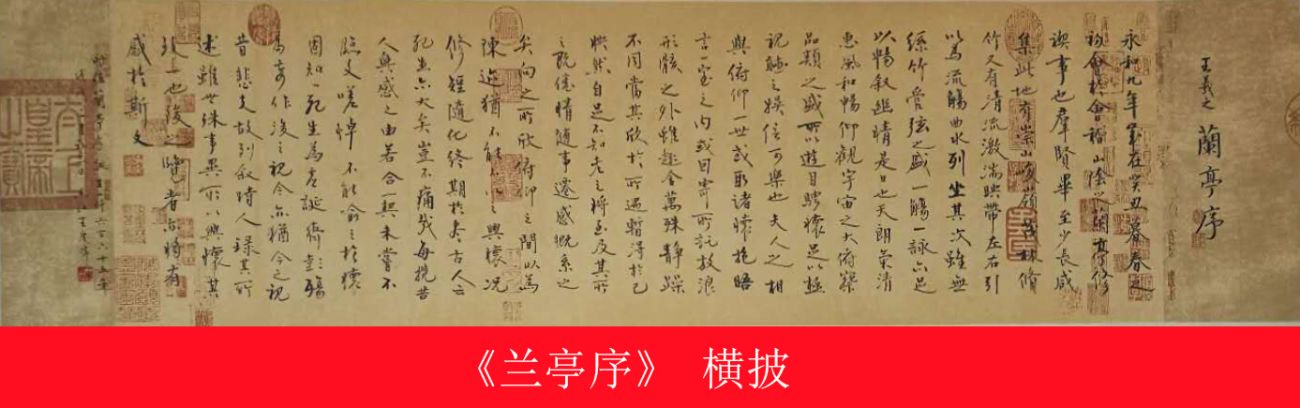 王羲之
蘭亭序
永和九年歲在癸丑暮春之
初會於會稽山陰之蘭亭修
禊事也羣賢畢至少長咸
集此地有崇山峻領茂林脩
竹又有清流激湍映帶左右引
以為流觴曲水列坐其次雖無
絲竹管弦之盛一觴一詠亦足
以暢叙幽情是日也天朗氣清
惠風和暢仰觀宇宙之大俯察
品類之盛所以遊目騁懷足以極
視聽之娛信可樂也夫人之相
與俯仰一世或取諸懷抱晤
言一室之內或因寄所託放浪
形骸之外雖趣舍萬殊靜躁
不同當其欣於所遇暫得於己
怏然自足不知老之將至及其所
之既倦情隨事遷感慨系之
矣向之所欣俯仰之間以為
陳迹猶不能不以之興懷況
修短隨化終期於盡古人云
死生亦大矣豈不痛哉每攬昔
人興感之由若合一契未嘗不
臨文嗟悼不能喻之於懷
固知一死生為虛誕齊彭殤
為妄作後之視今亦猶今之視
昔悲夫故列叙時人錄其所
述雖世殊事異所以興懷其
致一也後之覽者亦將有
感於斯文
《兰亭序》 横披